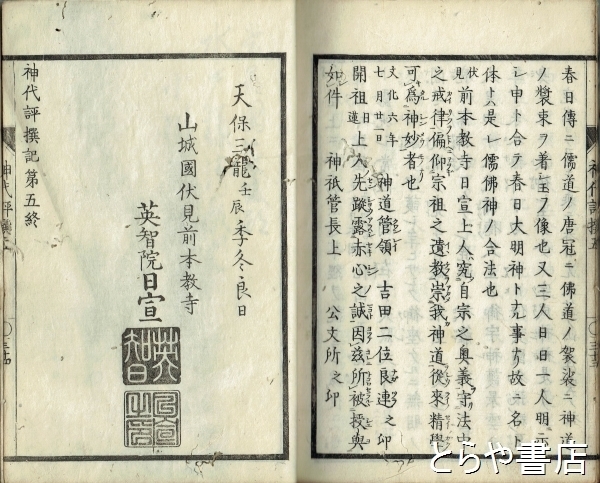 春日傳ニ儒道ノ唐冠ニ佛道ノ袈裟ニ神道
ノ裝束ヲ着玉フ像也又三人日日一人明示
シ申ト合テ春日大明神ト充事ナリ故ニ名ト
体トハ是レ儒佛神ノ合法也
伏見前本教寺日宣上人究自宗之奥義守法中
之戒律偏仰宗祖之遺教崇我神道後來精學
可爲神妙者也
文化六年
七月廿一日
神道管領 吉田二位良連之印
開祖日蓮上人先蹤露赤心之誠因茲所被授與
如件 神祇管長上 公文所之印
神代評撰五
天保三龍壬辰季冬良日
山城國伏見前本教寺
英智院日宣
英智日宣之印
神代評撰記第五終
とらや書店